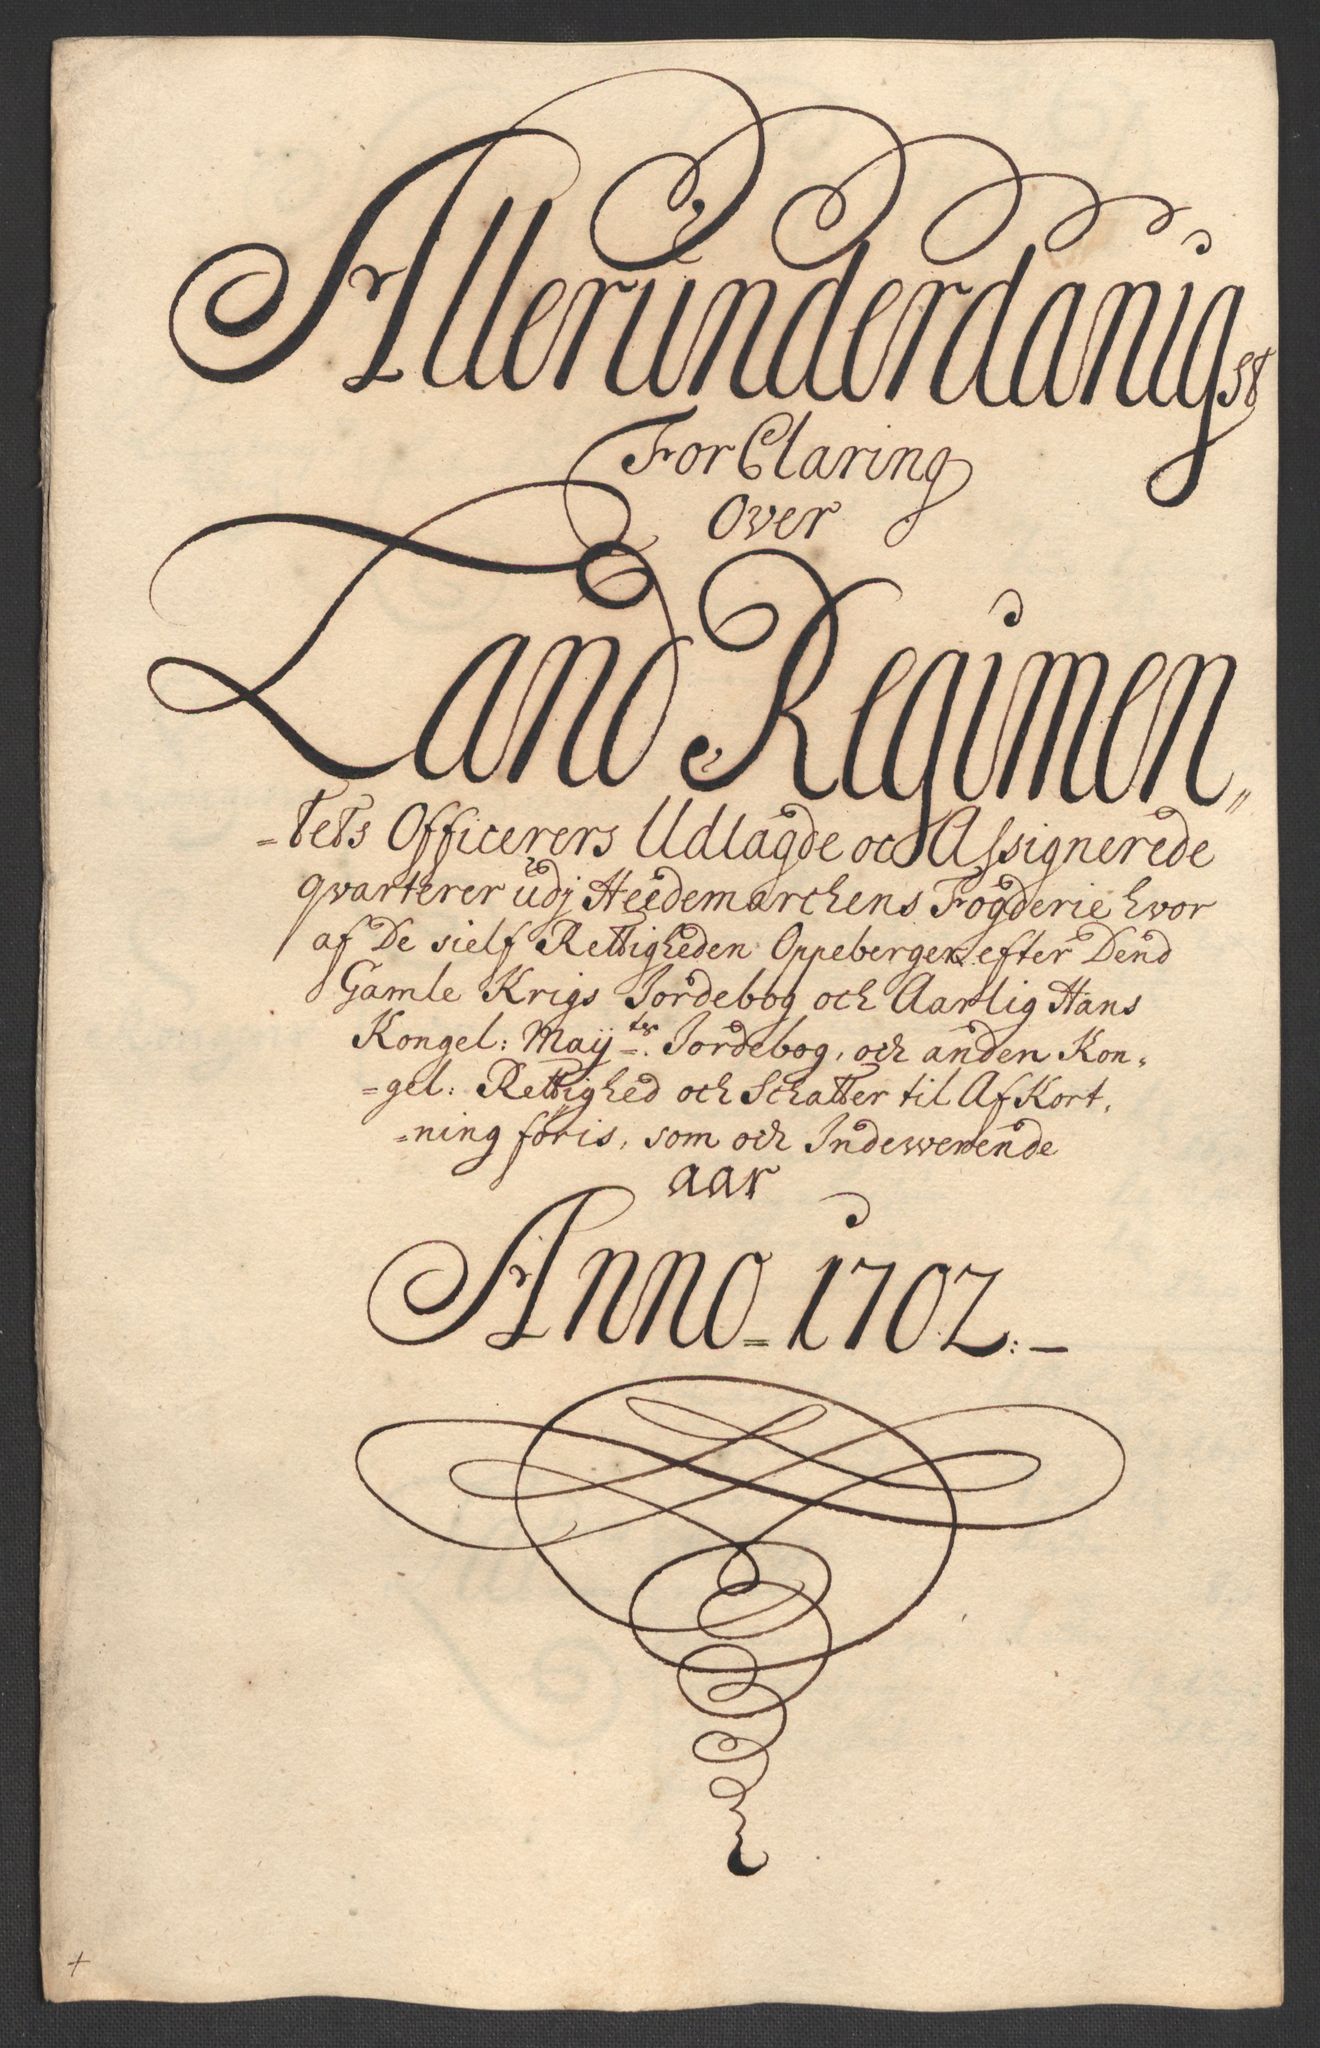 Allerunderdanigst
ForClaring
Over
Land Regimen„
=tets Officerers Udlagde och Assignerede
qvarterer udj Heedemarchens Fogderie hvor
af De sielf Rettigheden Oppeberger efter Dend
Gamle Krigs Jordebog och Aarlig Hans
Kongel: Mayts. Jordebog, och anden Kon,
=gel: Rettighed och Schatter til AfKort,
=ning föris, som och Indewerende
aar
Anno=1702:—
+